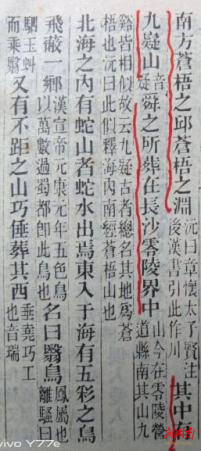 南方蒼梧之邱蒼梧之淵沅曰章懷太子賢注後漢書引此作川其中有
九嶷山音疑舜之所葬在長沙零陵界中山今在零陵營道縣南其山九
谿皆相似故云九疑古者總名其地爲蒼梧也沅曰此似釋海內南經蒼梧山也
北海之內有蛇山者蛇水出焉東入于海有五彩之鳥
飛蔽一鄉漢宣帝元康元年五色鳥以萬數過蜀都即此鳥也名曰翳鳥鳳屬也離騷曰
駟玉虯而乘翳又有不距之山巧倕葬其西垂堯巧工也音瑞
vivo Y77e